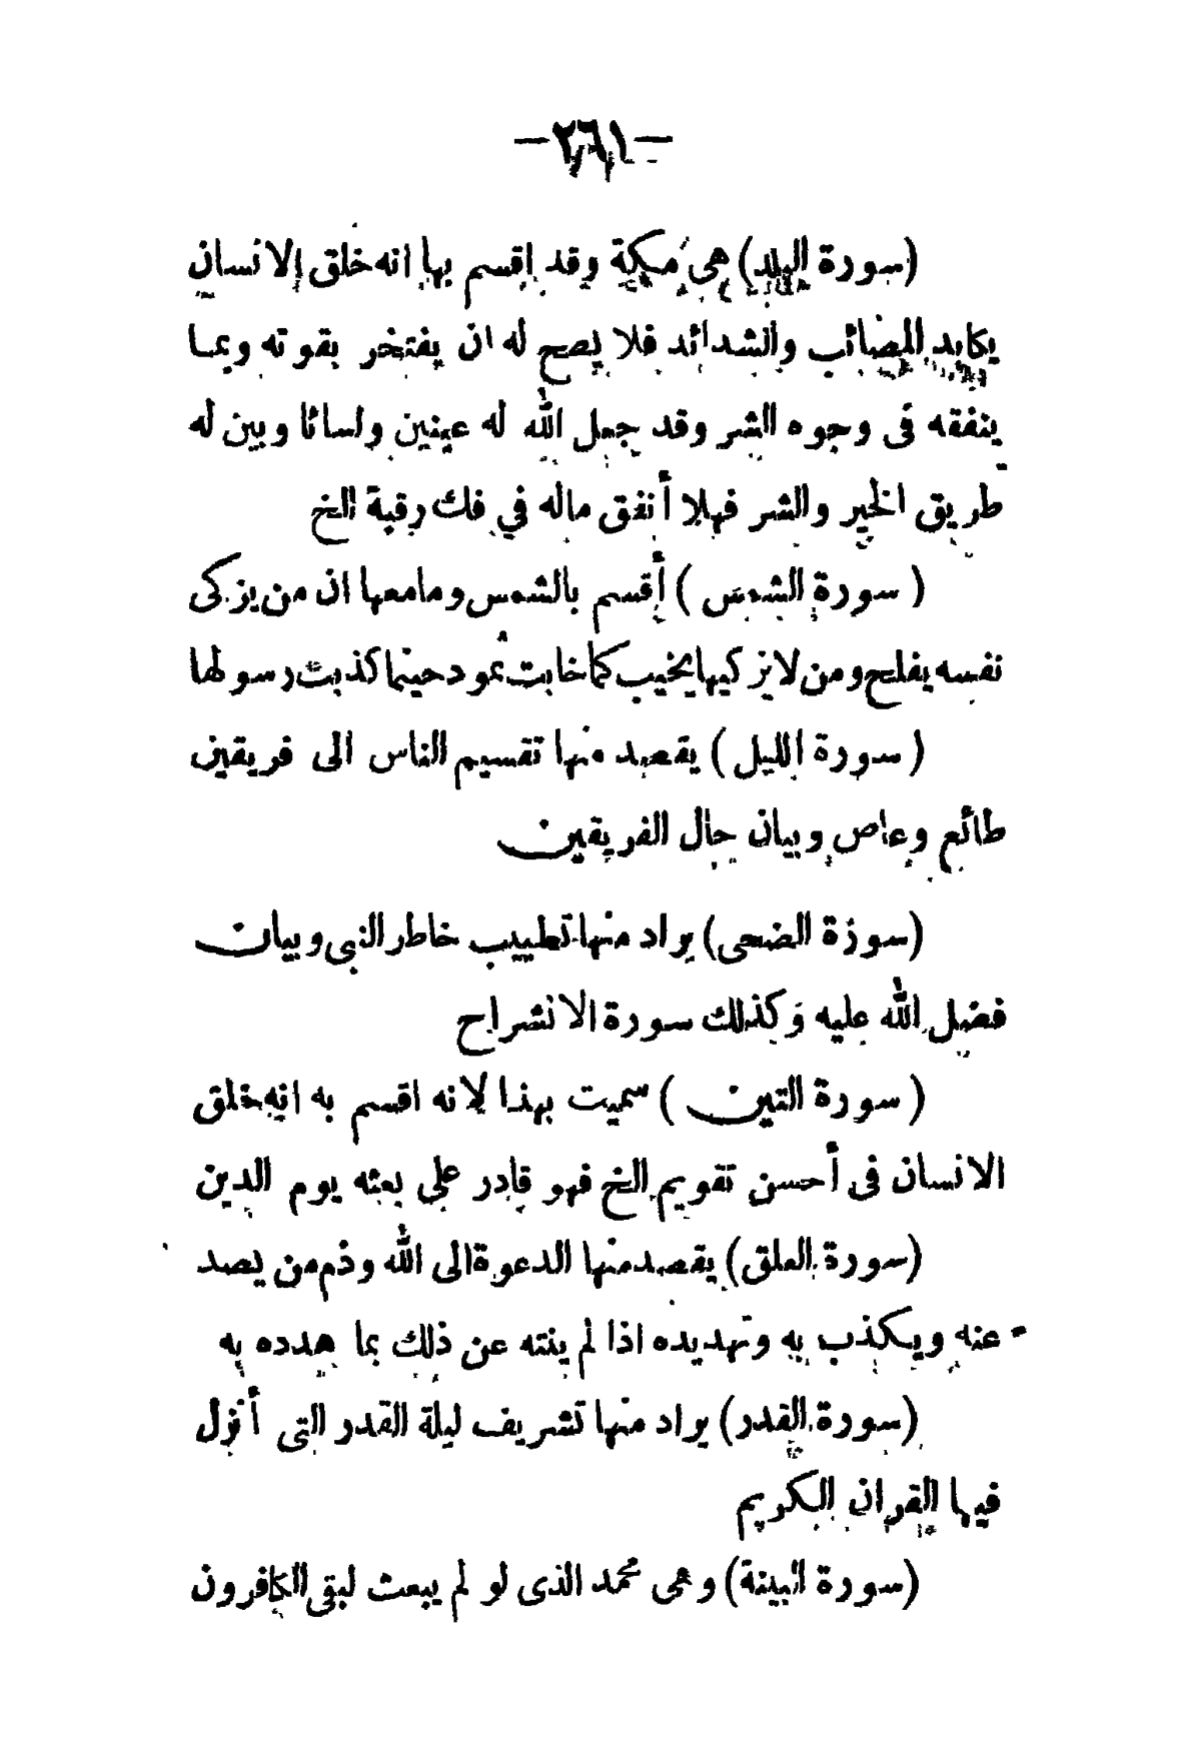 —٢٦١—
(سورة البلد) هى مكة وقد اقسم بها انه خلق الانسان
يكابد المصائب والشدائد فلا يصح له ان يفتخر بقوته وبما
ينفقه فى وجوه الشر وقد جعل الله له عينين ولسانا وبين له
طريق الخير والشر فهلا أنفق ماله في فك رقبة الخ
( سورة الشمس ) أقسم بالشمس ومامعها ان من يزكى
نفسه يفلح ومن لايزكيها يخيب كما خابت ثمود حينما كذبت رسولها
( سورة الليل ) يقصد منها تقسيم الناس الى فريقين
طائع وعاص وبيان حال الفريقين
(سورة الضحى) يراد منها تطييب خاطر النبى وبيان
فضل الله عليه وكذلك سورة الانشراح
( سورة التين ) سميت بهذا لانه اقسم به انه خلق
الانسان فى أحسن تقويم الخ فهو قادر على بعثه يوم الدين
(سورة العلق) يقصد منها الدعوة الى الله وذم من يصد
عنه ويكذب به وتهديده اذا لم ينته عن ذلك بما هدده به
(سورة القدر) يراد منها تشريف ليلة القدر التى أنزل
فيها القران الكريم
(سورة البينة) وهى محمد الذى لو لم يبعث لبقى الكافرون